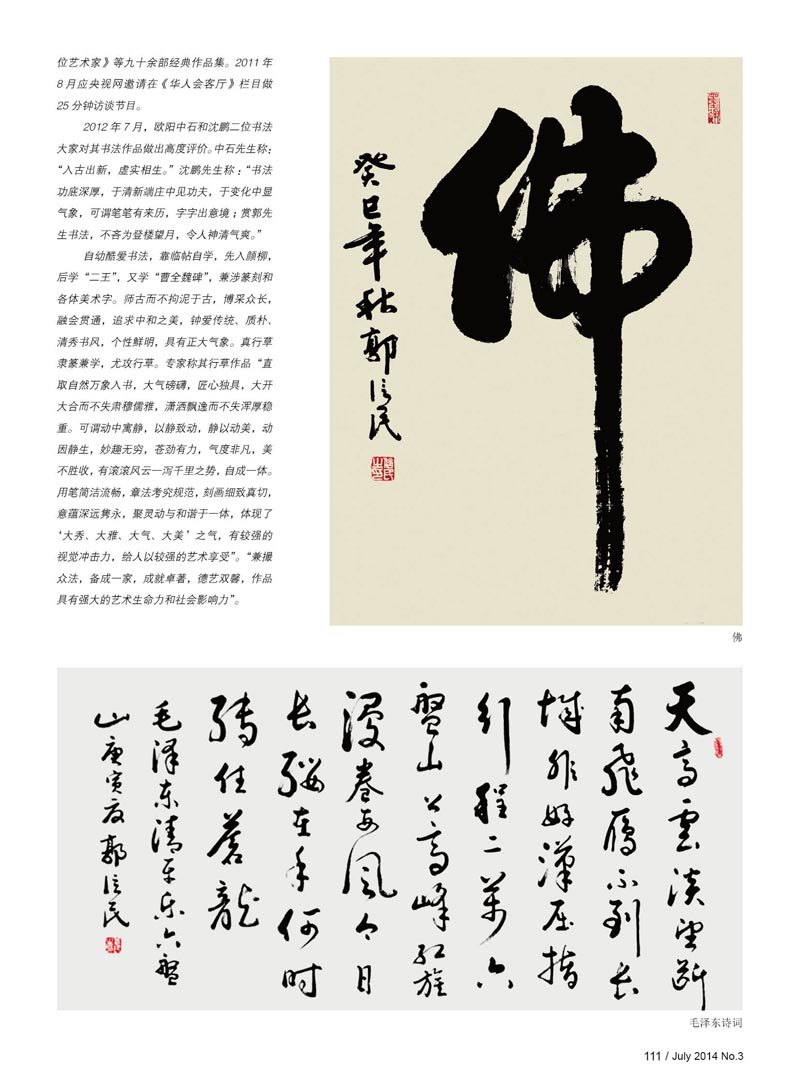 位艺术家》等九十余部经典作品集。2011 年
8 月应央视网邀请在《华人会客厅》栏目做
25 分钟访谈节目。
2012 年 7 月，欧阳中石和沈鹏二位书法
大家对其书法作品做出高度评价。中石先生称：
“入古出新，虚实相生。”沈鹏先生称：“书法
功底深厚，于清新端庄中见功夫，于变化中显
气象，可谓笔笔有来历，字字出意境；赏郭先
生书法，不吝为登楼望月，令人神清气爽。”
自幼酷爱书法，靠临帖自学，先入颜柳，
后学“二王”，又学“曹全魏碑”，兼涉篆刻和
各体美术字。师古而不拘泥于古，博采众长，
融会贯通，追求中和之美，钟爱传统、质朴、
清秀书风，个性鲜明，具有正大气象。真行草
隶篆兼学，尤攻行草。专家称其行草作品“直
取自然万象入书，大气磅礴，匠心独具，大开
大合而不失肃穆儒雅，潇洒飘逸而不失浑厚稳
重。可谓动中寓静，以静致动，静以动美，动
因静生，妙趣无穷，苍劲有力，气度非凡，美
不胜收，有滚滚风云一泻千里之势，自成一体。
用笔简洁流畅，章法考究规范，刻画细致真切，
意蕴深远隽永，聚灵动与和谐于一体，体现了
‘大秀、大雅、大气、大美’之气，有较强的
视觉冲击力，给人以较强的艺术享受”。“兼撮
众法，备成一家，成就卓著，德艺双馨，作品
具有强大的艺术生命力和社会影响力”。
佛
癸巳年秋郭信民
佛
天高雲淡望断
南飛雁不到长
城非好漢屈指
行程二万六
盤山上高峰红旄
漫卷西風今日
长缨在手何时
缚住蒼龍
毛泽东清平乐六盤
山庚寅夏郭信民
毛泽东诗词
111 / July 2014 No.3